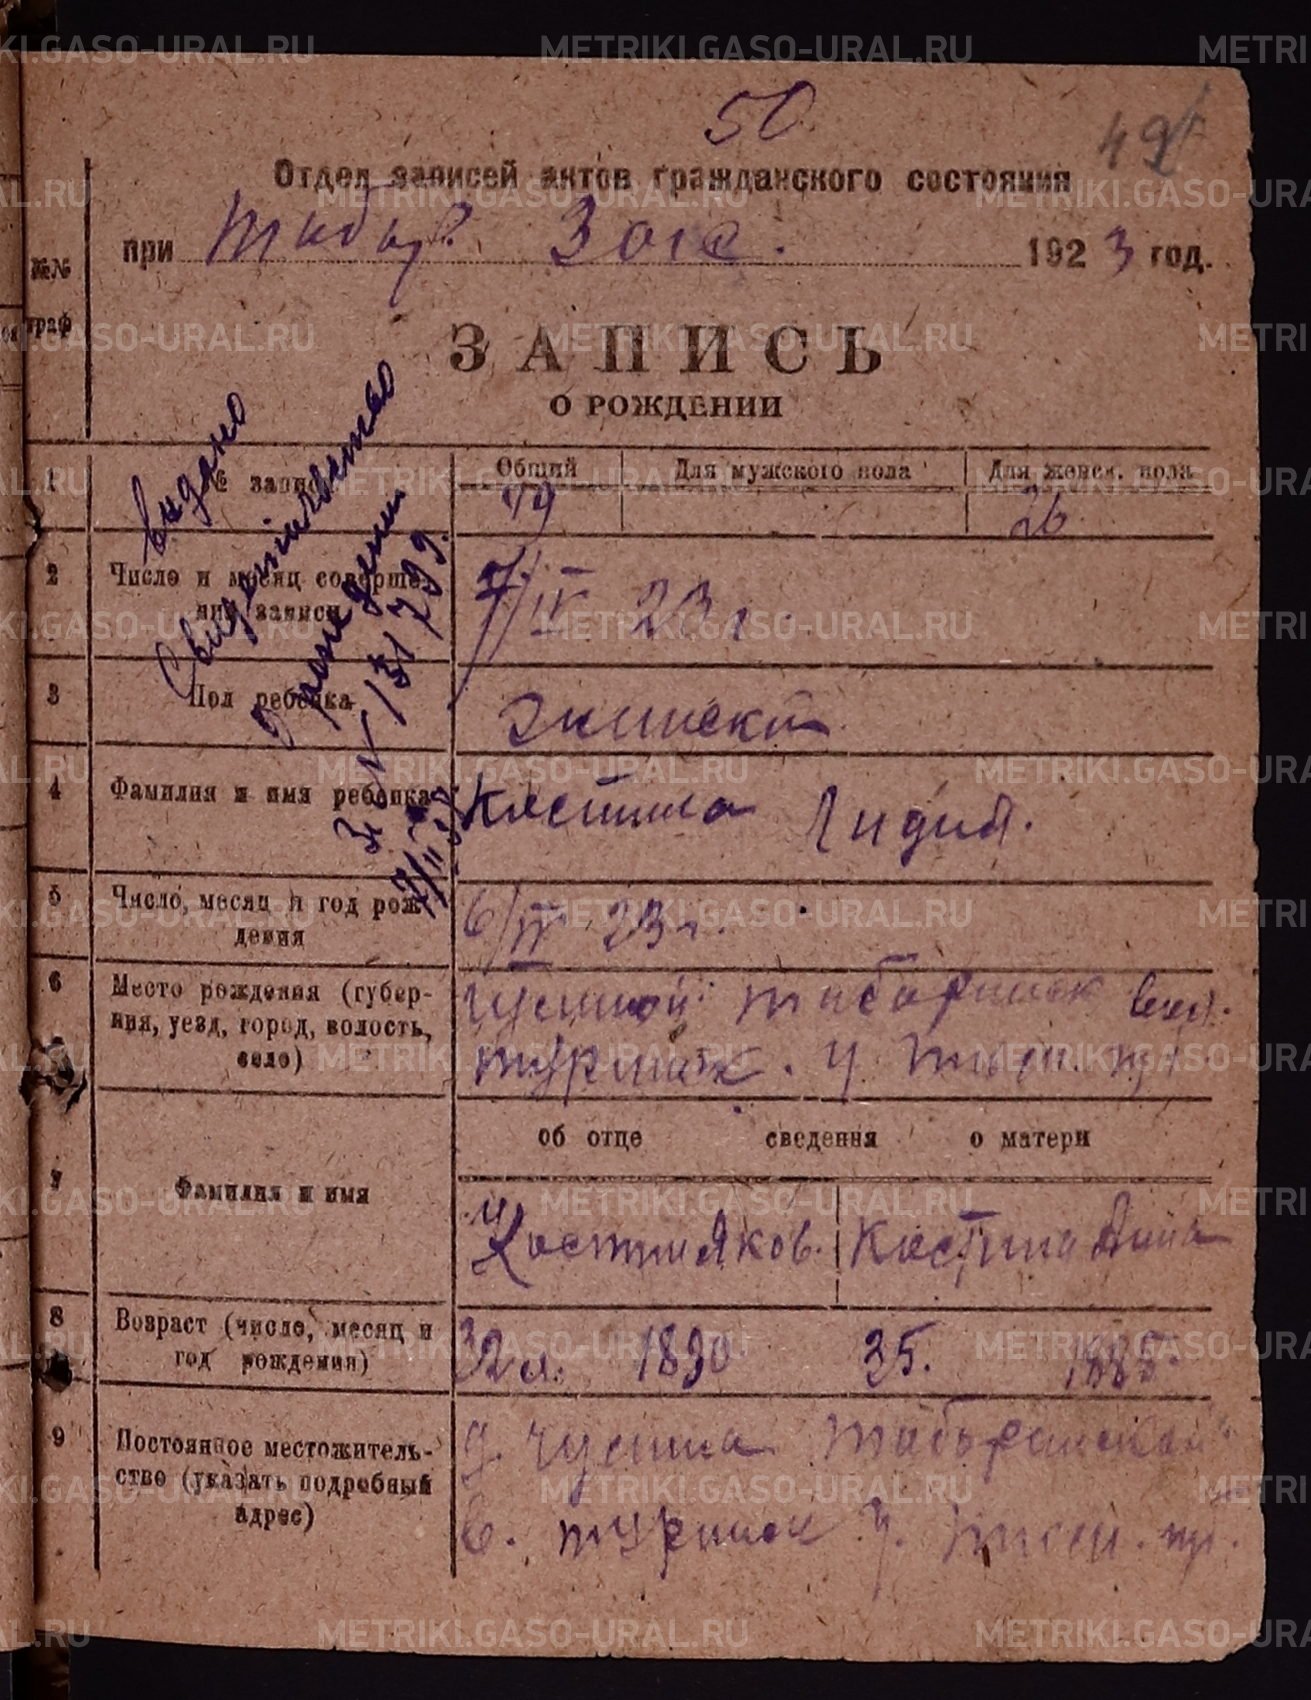 METRIKI.GASO-URAL.RU
50
49
Отдел записей актов гражданского состояния
при Табор. Загсе. 1923 год.
№№ граф
ЗАПИСЬ
О РОЖДЕНИИ
Выдано
Свидетельство
о рождении
1 № записи
Общий Для мужского пола Для женск. пола
49 26
2 Число и месяц соверше-
ния записи
7/IV 23 г.
3 Пол ребенка
Женский
4 Фамилия и имя ребенка
Костина Лидия.
5 Число, месяц и год рож-
дения
6/IV 23 г.
6 Место рождения (губер-
ния, уезд, город, волость,
село)
Таборинск вол.
Туринск. у.
об отце сведения о матери
7 Фамилия и имя
Костин Яков. Костина Анна
8 Возраст (число, месяц и
год рождения)
32 л. 1890 35. 1885.
9 Постоянное местожитель-
ство (указать подробный
адрес)
д. Таборинской
в. Туринск у.